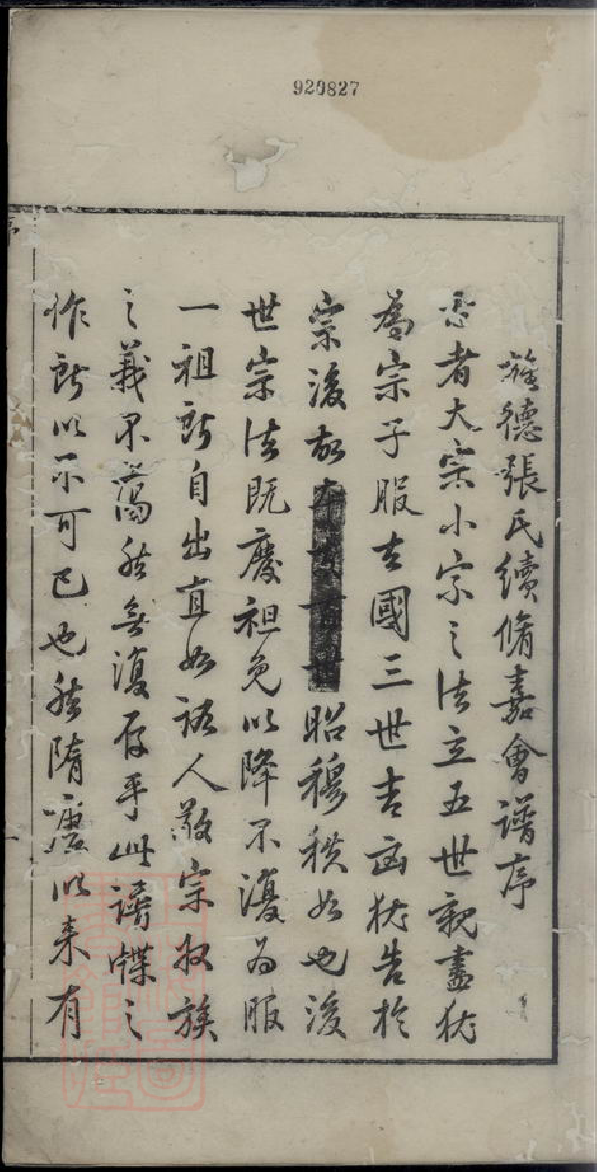 920827
旌德張氏續脩嘉會譜序
古者大宗小宗之法立五世親盡猶
為宗子服去國三世吉凶猶告於
宗後故昭穆秩如也後
世宗法既廢袒免以降不復為服
一祖所自出直如路人敬宗收族
之義不蕩然無復存乎此譜牒之
作所以不可已也然隋唐以来有